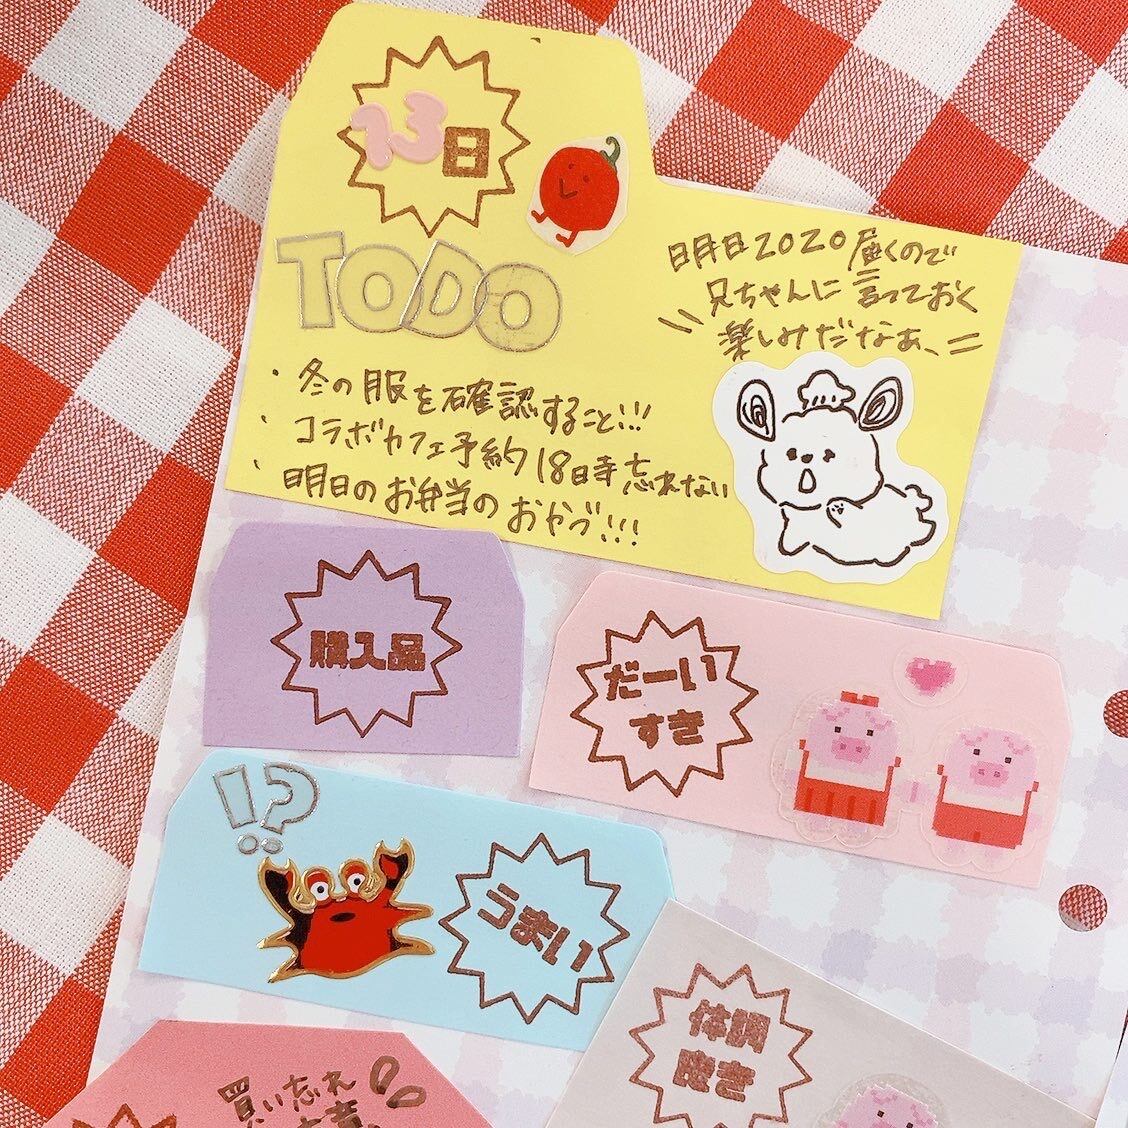 13日
TODO
明日2020届くので
兄ちゃんに言っておく
楽しみだなぁ、
・冬の服を確認すること!!!
・コラボカフェ予約18日寺忘れない
・明日のお弁当のおやつ!!!
購入品
だーい
すき
!?
うまい
体調
買い忘れ